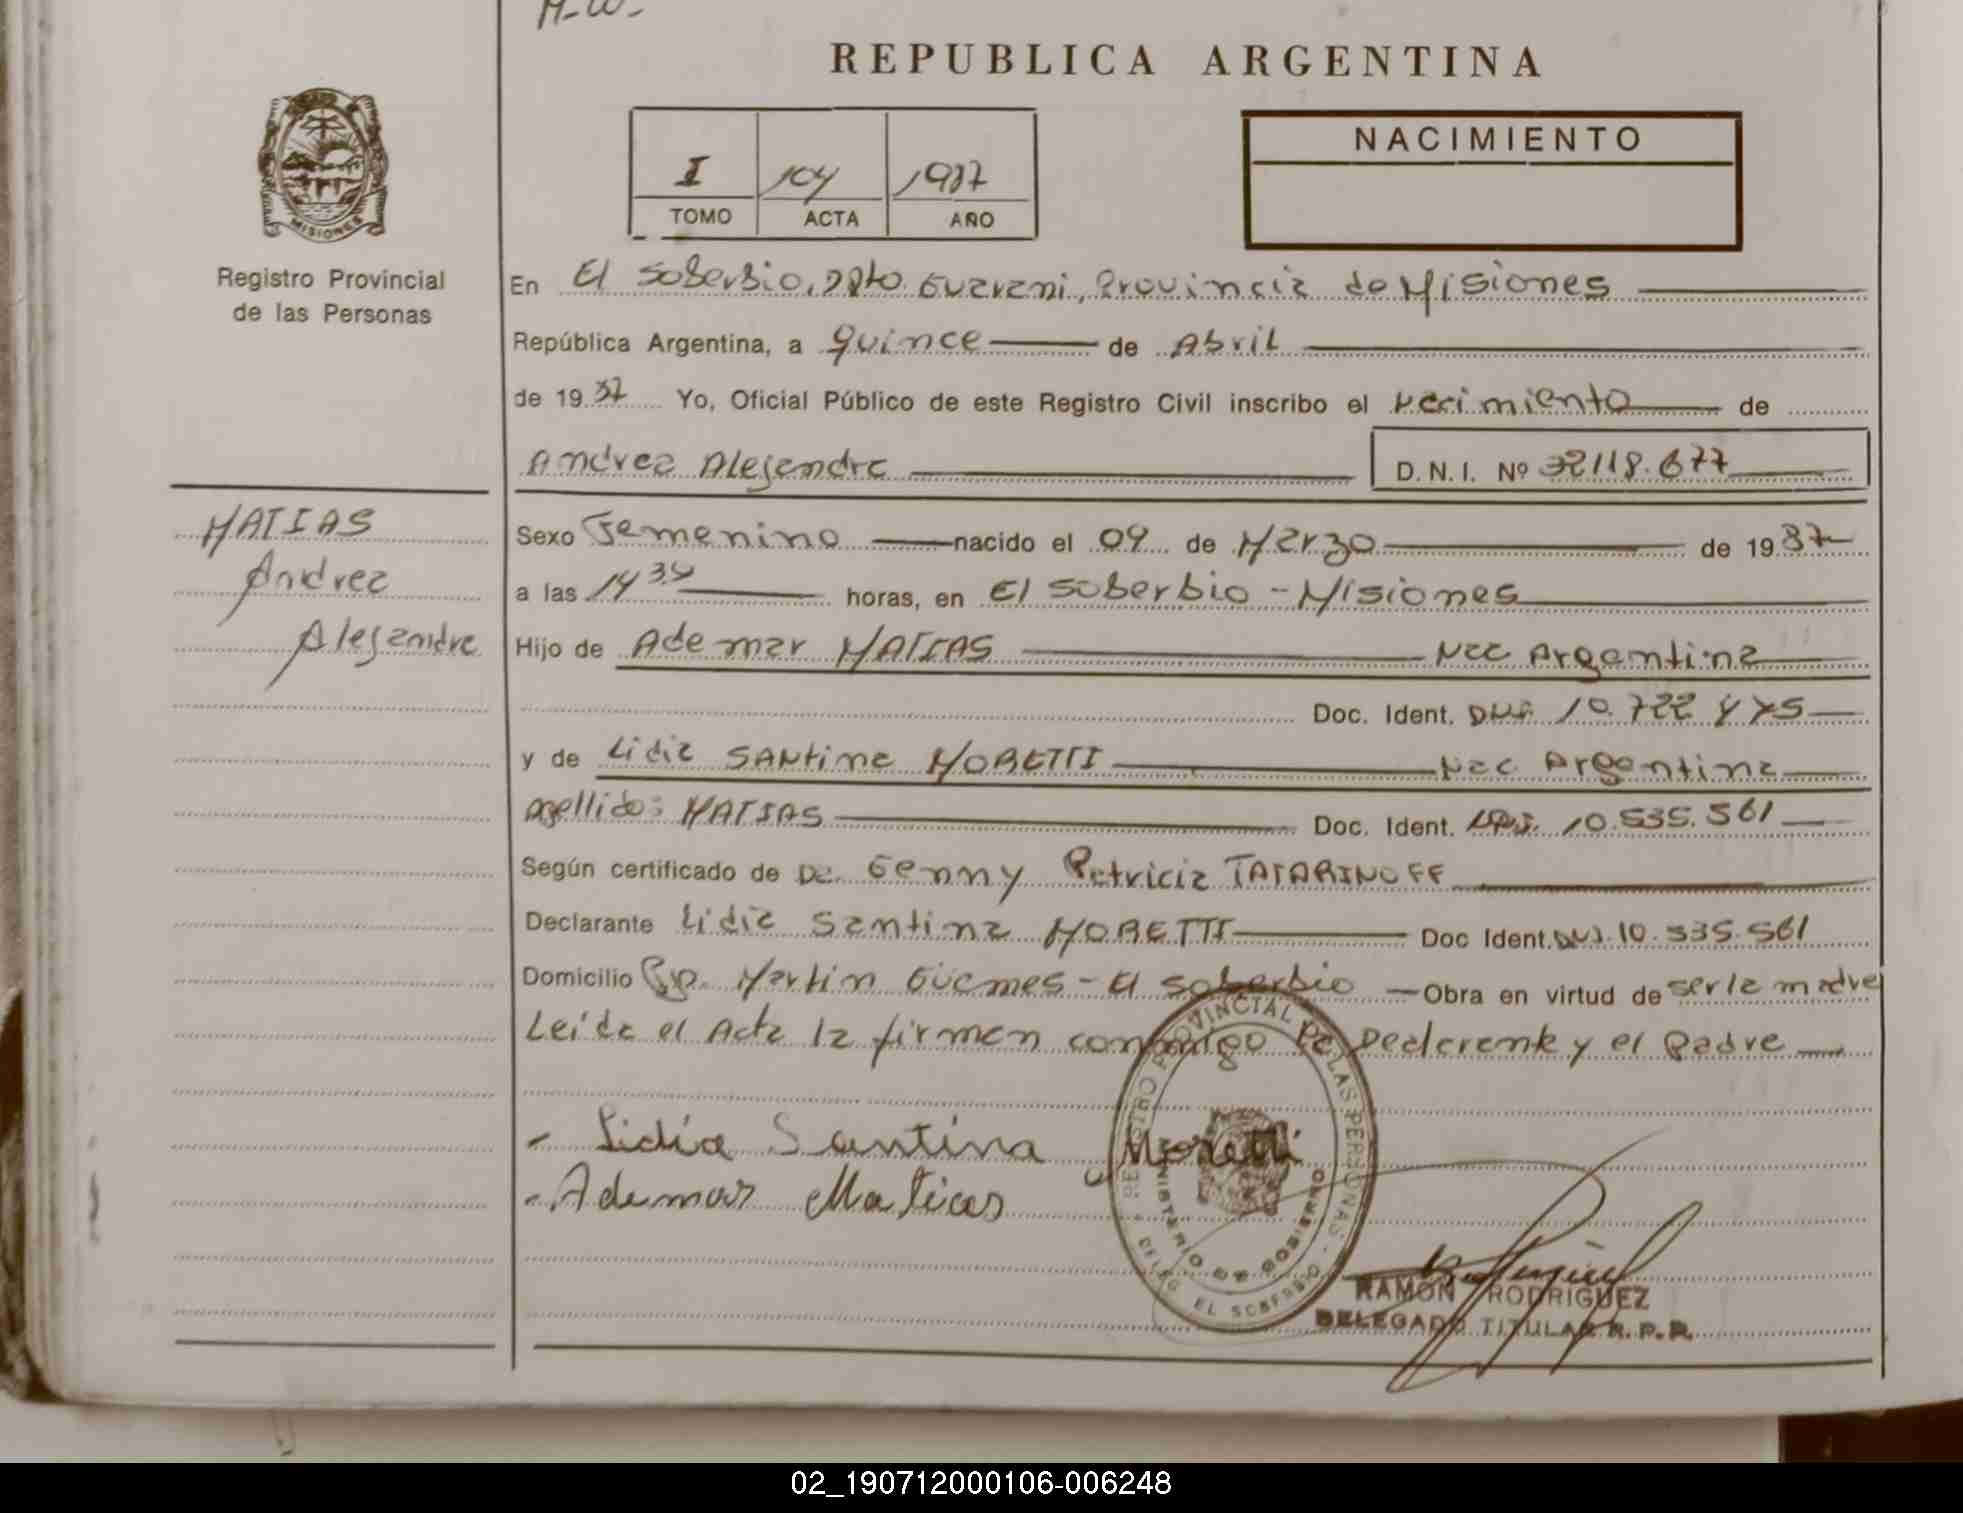 H-W-
REPUBLICA ARGENTINA
MISIONES
Registro Provincial
de las Personas
I 104 1987
TOMO ACTA AÑO
NACIMIENTO
En El Soberbio, Dpto. Guarani, Provincia de Misiones
República Argentina, a quince de Abril
de 19 87 Yo, Oficial Público de este Registro Civil inscribo el Nacimiento de
Andrea Alejandra D.N.I. Nº 32118.677
MATIAS
Andrea
Alejandra
Sexo Femenino nacido el 09 de Marzo de 1987
a las 14 34 horas, en El Soberbio - Misiones
Hijo de Ademar MATIAS Nac Argentina
Doc. Ident. DNI 10.722 445
y de Lidia SANtina MORETTI Nac Argentina
Apellido: MATIAS Doc. Ident. 10.535.561
Según certificado de Da. Genny Patricia TATARINOFF
Declarante Lidia Santina MORETTI Doc Ident. DNI 10.535.561
Domicilio Bp. Martin Güemes - El Soberbio Obra en virtud de ser la madre
Leida el Acta la firman conmigo la Declarante y el Padre
- Lidia Santina Moretti
- Ademar Matias
REGISTRO PROVINCIAL DE LAS PERSONAS
MINISTERIO DE GOBIERNO
DELEG. EL SOBERBIO
RAMON RODRIGUEZ
DELEGADO TITULAR R.P.P.
02_190712000106-006248